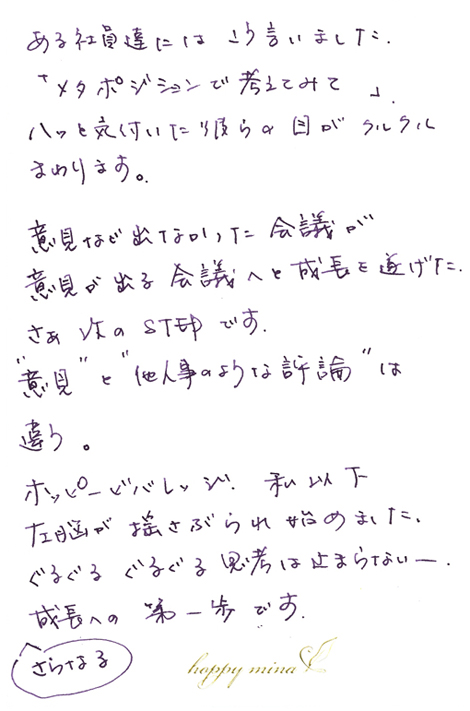 ある社員達にはこう言いました.
「メタポジションで考えてみて」.
ハッと気付いた彼らの目がクルクル
まわります。
意見など出なかった会議が
意見が出る会議へと成長を遂げた.
さあ次のSTEPです.
"意見"と"他人事のような評論"は
違う。
ホッピービバレッジ. 私以下
左脳が揺さぶられ始めました.
ぐるぐるぐるぐる思考は止まらないー.
成長への第一歩です.
さらなる
happy mina